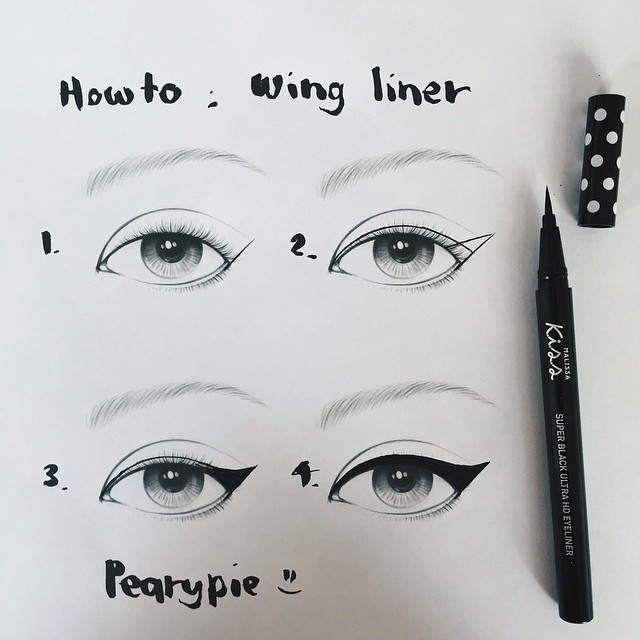 How to : Wing liner
1.
2.
3.
4.
Pearypie =)
MALISSA
Kiss
SUPER BLACK ULTRA HD EYELINER